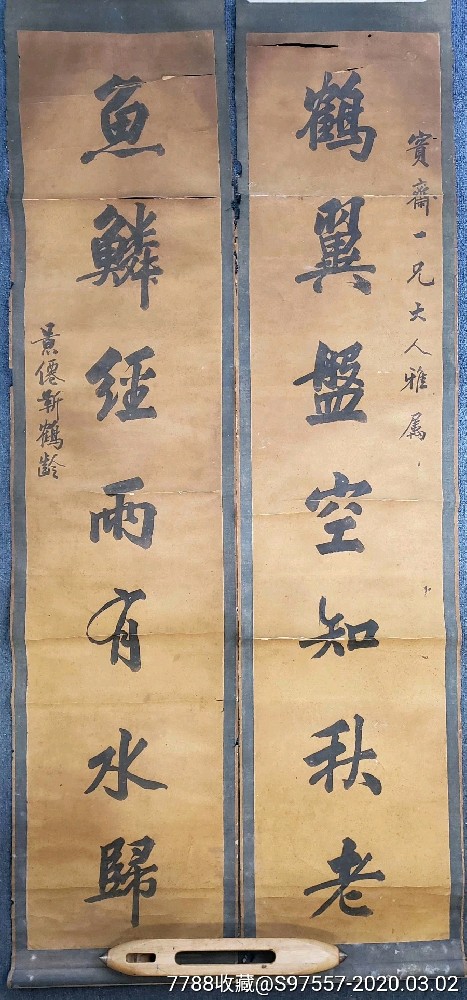 賓齋一兄大人雅属
鶴翼盤空知秋老
魚鱗經雨有水歸
景僊靳鶴齡
7788收藏@S97557-2020.03.02